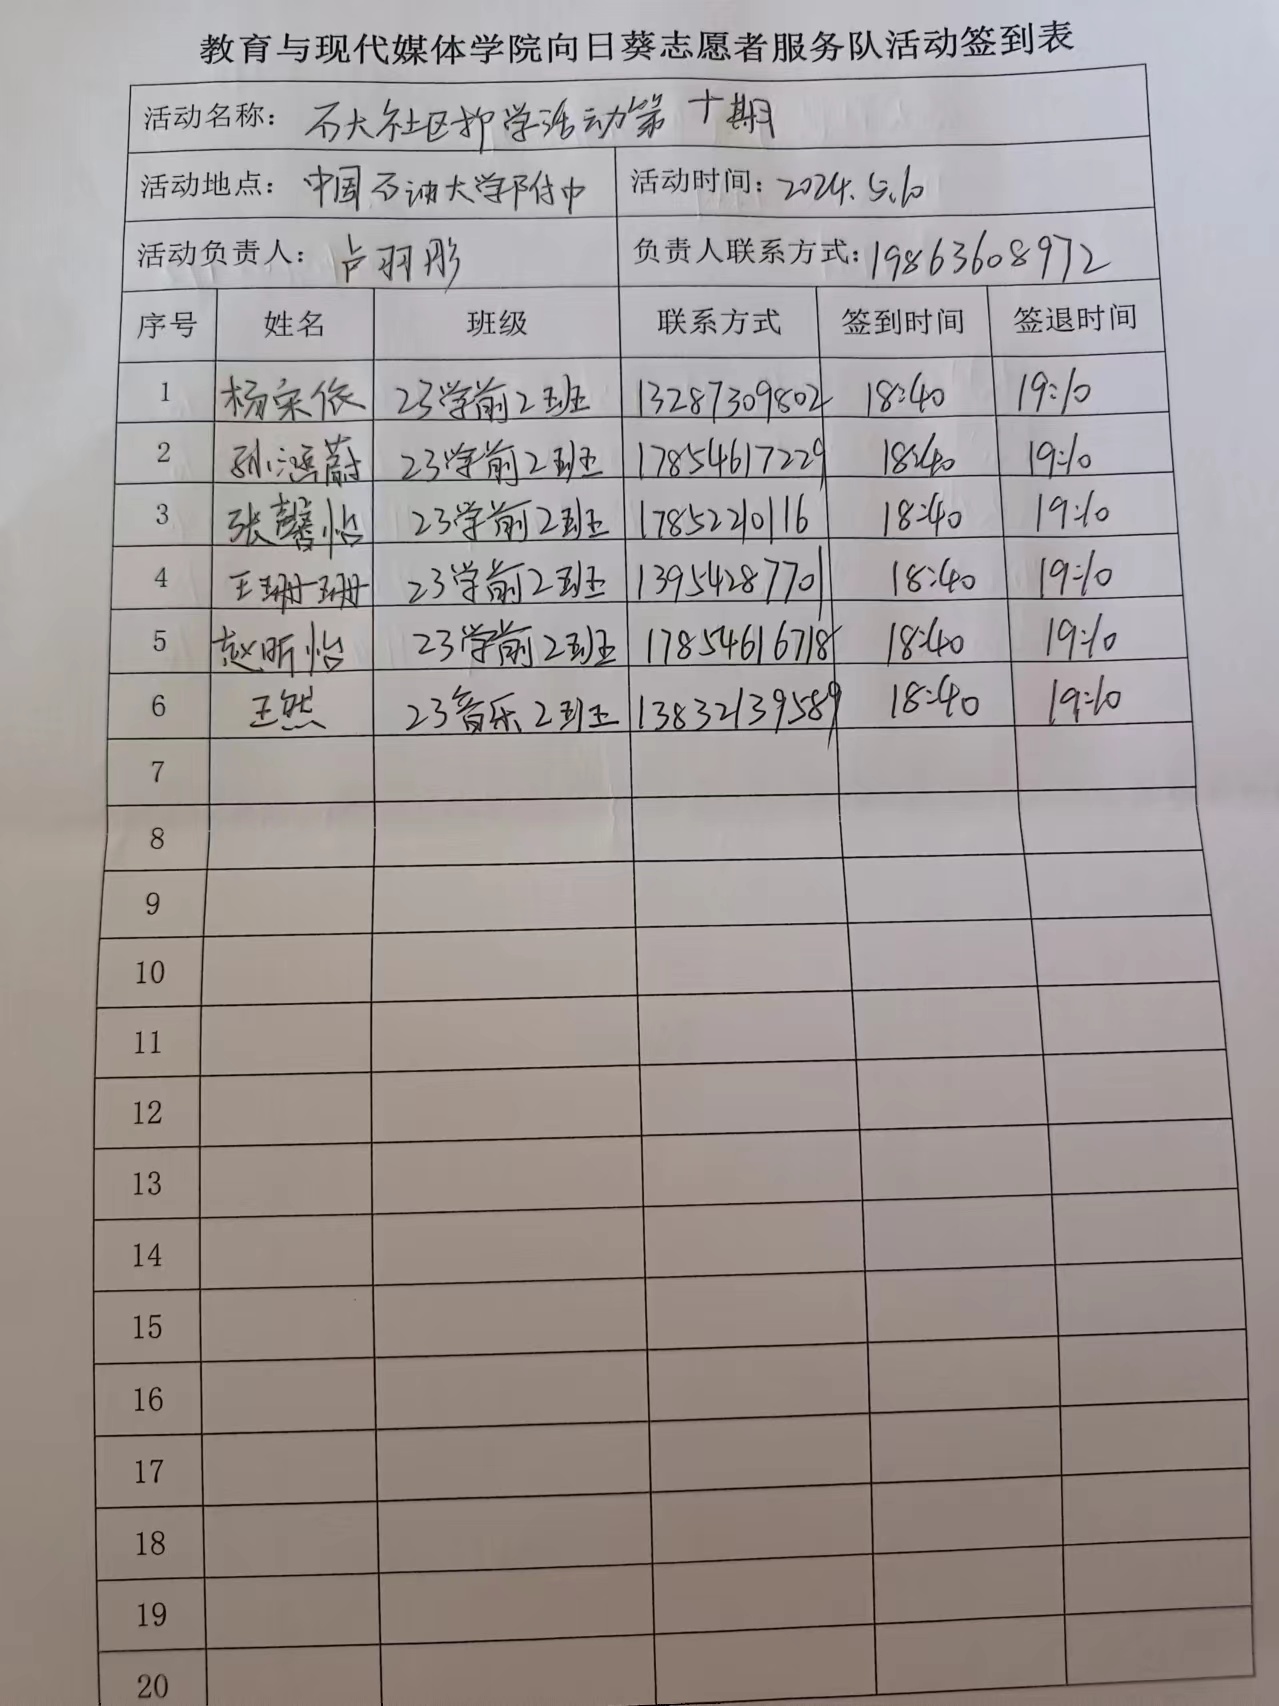 教育与现代媒体学院向日葵志愿者服务队活动签到表
活动名称: 石大社区护学活动第十期
活动地点: 中国石油大学附中 活动时间: 2024.5.10
活动负责人: 卢羽彤 负责人联系方式: 19863608972
序号 姓名 班级 联系方式 签到时间 签退时间
1 杨宗依 23学前2班 13287309802 18:40 19:10
2 孙鸿蔚 23学前2班 17854617229 18:40 19:10
3 张馨怡 23学前2班 17852210116 18:40 19:10
4 王珊珊 23学前2班 13954287701 18:40 19:10
5 赵昕怡 23学前2班 17854616718 18:40 19:10
6 王然 23音乐2班 13832139589 18:40 19:10
7
8
9
10
11
12
13
14
15
16
17
18
19
20